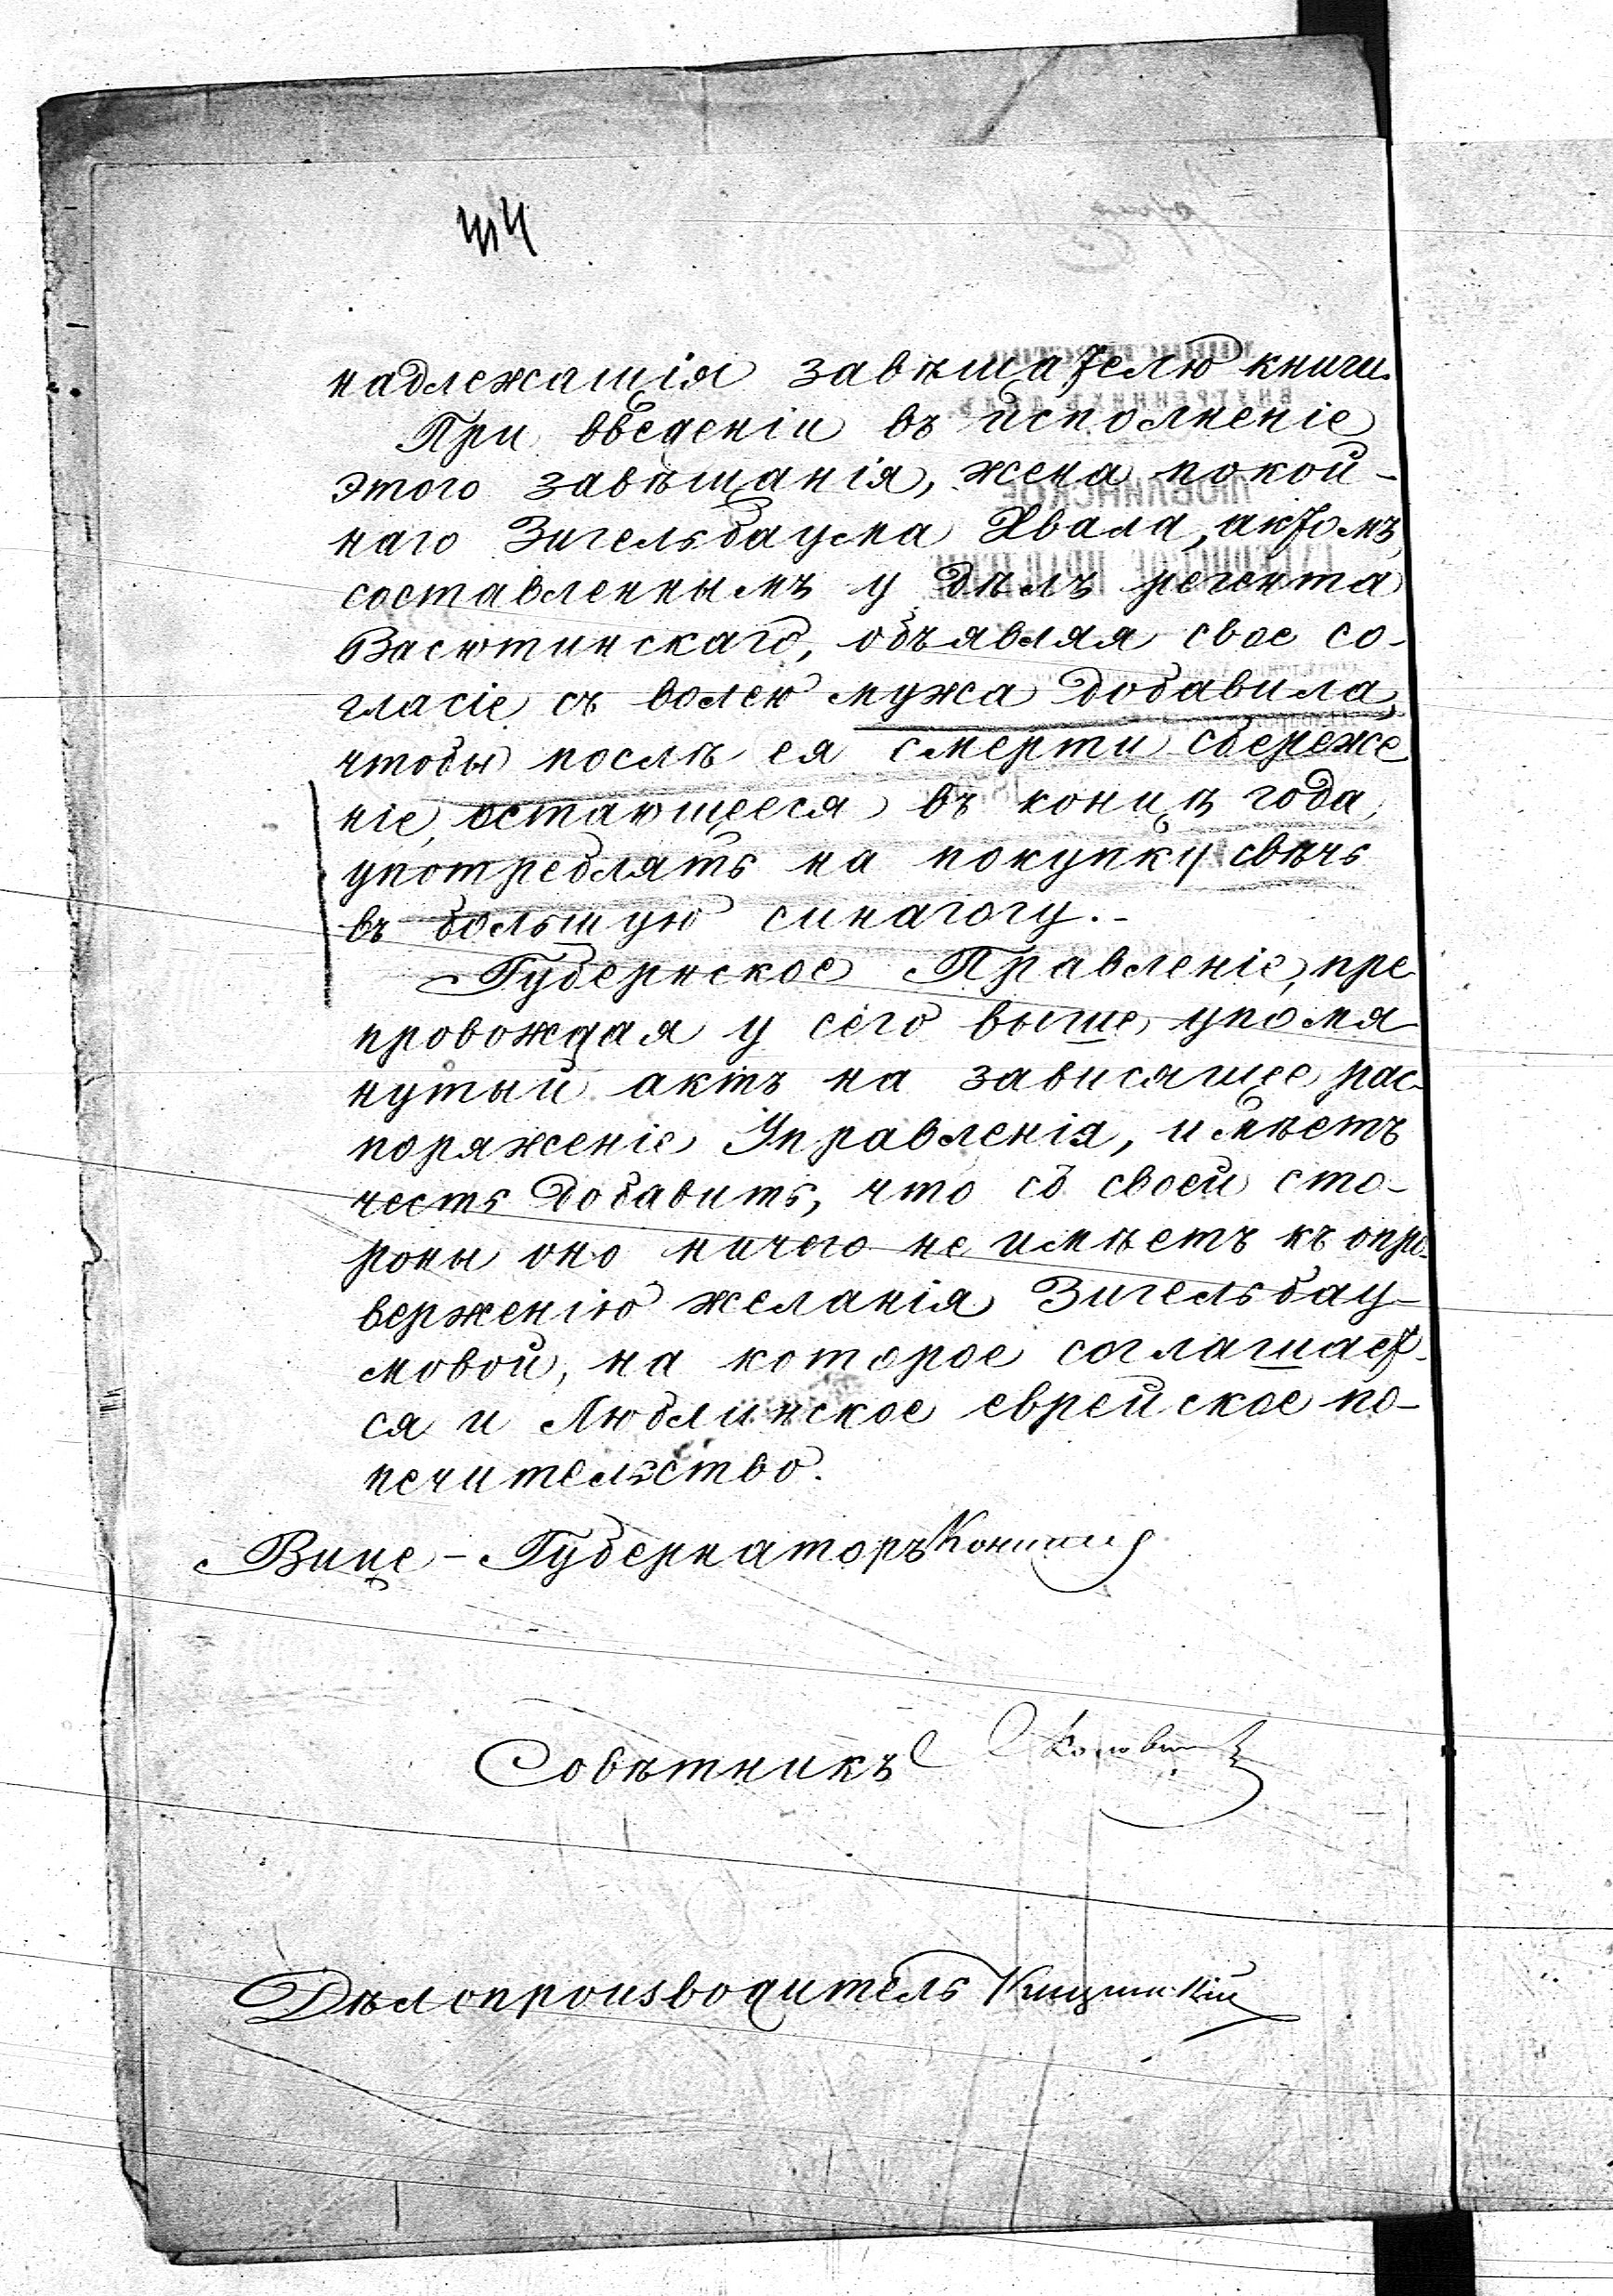 надлежащія завѣщателю книги.
При введеніи въ исполненіе
этого завѣщанія, жена покой-
наго Зигельбаума Хвала, актомъ,
составленнымъ у дѣлъ регента
Васютинскаго, объявляя свое со-
гласіе съ волею мужа добавила,
чтобы послѣ ея смерти сбереже
ніе, остающееся въ концѣ года,
употреблять на покупку свѣчь
въ большую синагогу.-
Губернское Правленіе, пре
провождая у сего выше упомя
нутый актъ на зависящее рас-
поряженіе Управленія, имѣетъ
честь добавить, что съ своей сто-
роны оно ничего не имѣетъ къ опро-
верженію желанія Зигельбау-
мовой, на которое соглашает-
ся и Люблинское еврейское по-
печительство.
Вице-Губернаторъ
Совѣтникъ
Дѣлопроизводитель